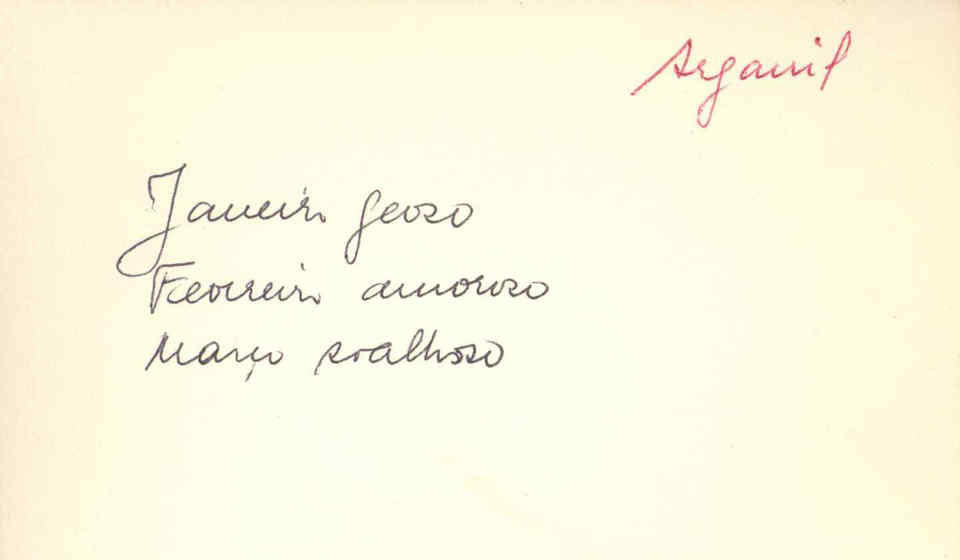 Arganil
Janeiro geoso
Fevereiro amoroso
Março soalhoso